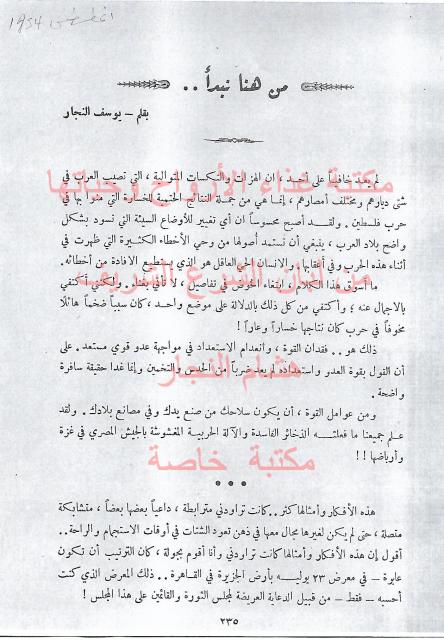 اغسطس ١٩٥٤
من هنا نبدأ ..
بقلم – يوسف النجار
لم يعد خافياً على أحد ، ان الهزات والنكسات المتوالية ، التي تصيب العرب في
شتى ديارهم ومختلف أمصارهم ، إنما هي من جملة النتائج الحتمية للخسارة التي منوا بها في
حرب فلسطين . ولقد أصبح محسوساً ان أي تغيير للأوضاع السيئة التي تسود بشكل
واضح بلاد العرب ، ينبغي أن نستمد أصولها من وحي الأخطاء الكثيرة التي ظهرت في
أثناء هذه الحرب وفي أعقابها . والانسان الحي العاقل هو الذي يستطيع الافادة من أخطائه.
ما أسوق هذا الكلام ، ابتغاء الخوض في تفاصيل ، لا تأتي ولكني أكتفي
بالاجمال عنه ؛ وأكتفي من كل ذلك بالدلالة على موضع واحد ، كان سبباً ضخماً هائلا
مخوفاً في حرب كان نتاجها خساراً وعاراً !
ذلك هو .. فقدان القوة ، وانعدام الاستعداد في مواجهة عدو قوي مستعد . على
أن القول بقوة العدو واستعداده لم يعد ضرباً من الحدس والتخمين وإنما غدا حقيقة سافرة
واضحة .
ومن عوامل القوة ، أن يكون سلاحك من صنع يدك وفي مصانع بلادك . ولقد
علم جميعنا ما فعلته الذخائر الفاسدة والآلة الحربية المغشوشة بالجيش المصري في غزة
وأرباضها !!
• • •
هذه الأفكار وأمثالها كثر .. كانت تراودني مترابطة ، داعياً بعضها بعضاً ، متشابكة
متصلة ، حتى لم يكن لغيرها مجال معها في ذهن تعود الشتات في أوقات الاستجمام والراحة ..
أقول إن هذه الأفكار وأمثالها كانت تراودني وأنا أقوم بجولة ، كان الترتيب أن تكون
عابرة – في معرض ٢٣ يوليه بأرض الجزيرة في القاهرة .. ذلك المعرض الذي كنت
أحسبه – فقط – من قبيل الدعاية العريضة لمجلس الثورة والقائمين على هذا المجلس !
٢٣٥
مكتبة غذاء الأرواح وحياتها
من لبان الشرع الشريف
هشام النجار
مكتبة خاصة